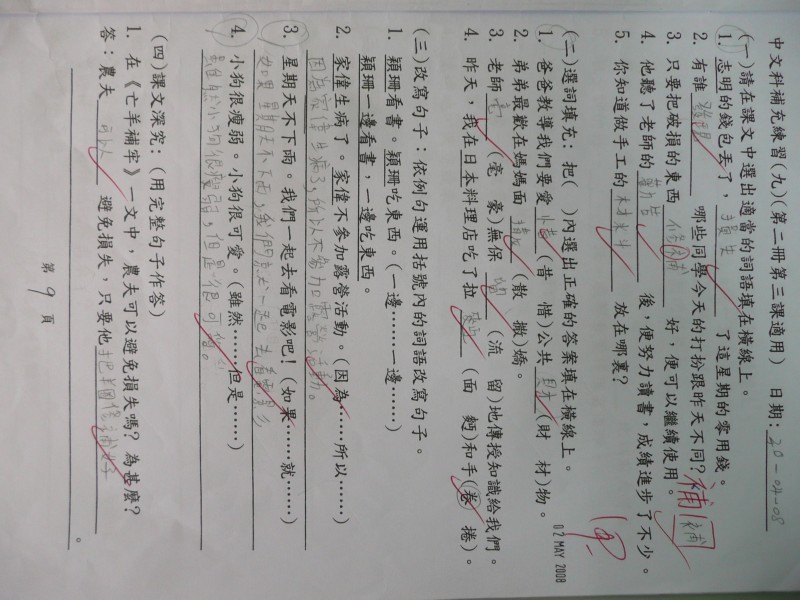 中文科補充練習(九)(第二冊第三課適用) 日期:20-04-08
(一)請在課文中選出適當的詞語填在橫線上。
1. 志明的錢包丟了,損失了這星期的零用錢。
2. 有誰發現哪些同學今天的打扮跟昨天不同?
3. 只要把破損的東西修補好,便可以繼續使用。
補
補
4. 他聽了老師的勸告後,便努力讀書,成績進步了不少。
5. 你知道做手工的材料放在哪裏?
(二)選詞填充:把( )內選出正確的答案填在橫線上。
02 MAY 2008
1. 爸爸教導我們要愛惜(昔 惜)公共財(財 材)物。
2. 弟弟最歡在媽媽面前(散 撒)嬌。
3. 老師(亳 豪)無保留(流 留)地傳授知識給我們。
4. 昨天,我在日本料理店吃了拉麵(面 麪)和手(卷 捲)。
(三)改寫句子:依例句運用括號內的詞語改寫句子。
1. 穎珊看書。穎珊吃東西。(一邊……一邊……)
穎珊一邊看書,一邊吃東西。
2. 家偉生病了。家偉不參加露營活動。(因為……所以……)
因為家偉生病了,所以不參加露營活動。
3. 星期天不下雨。我們一起去看電影吧!(如果……就……)
如果星期天不下雨,我們就一起去看電影
4. 小狗很瘦弱。小狗很可愛。(雖然……但是……)
雖然小狗很瘦弱,但是很可愛。
(四)課文深究:(用完整句子作答)
1. 在《亡羊補牢》一文中,農夫可以避免損失嗎?為甚麼?
答:農夫可以避免損失,只要他把羊圈修補好。
第9頁